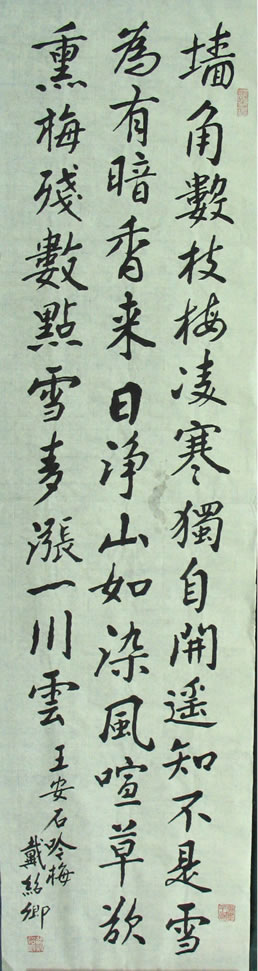 墙角數枝梅凌寒獨自開遥知不是雪
為有暗香来日净山如染風喧草欲
熏梅殘數點雪麥漲一川雲
王安石吟梅
戴紹卿